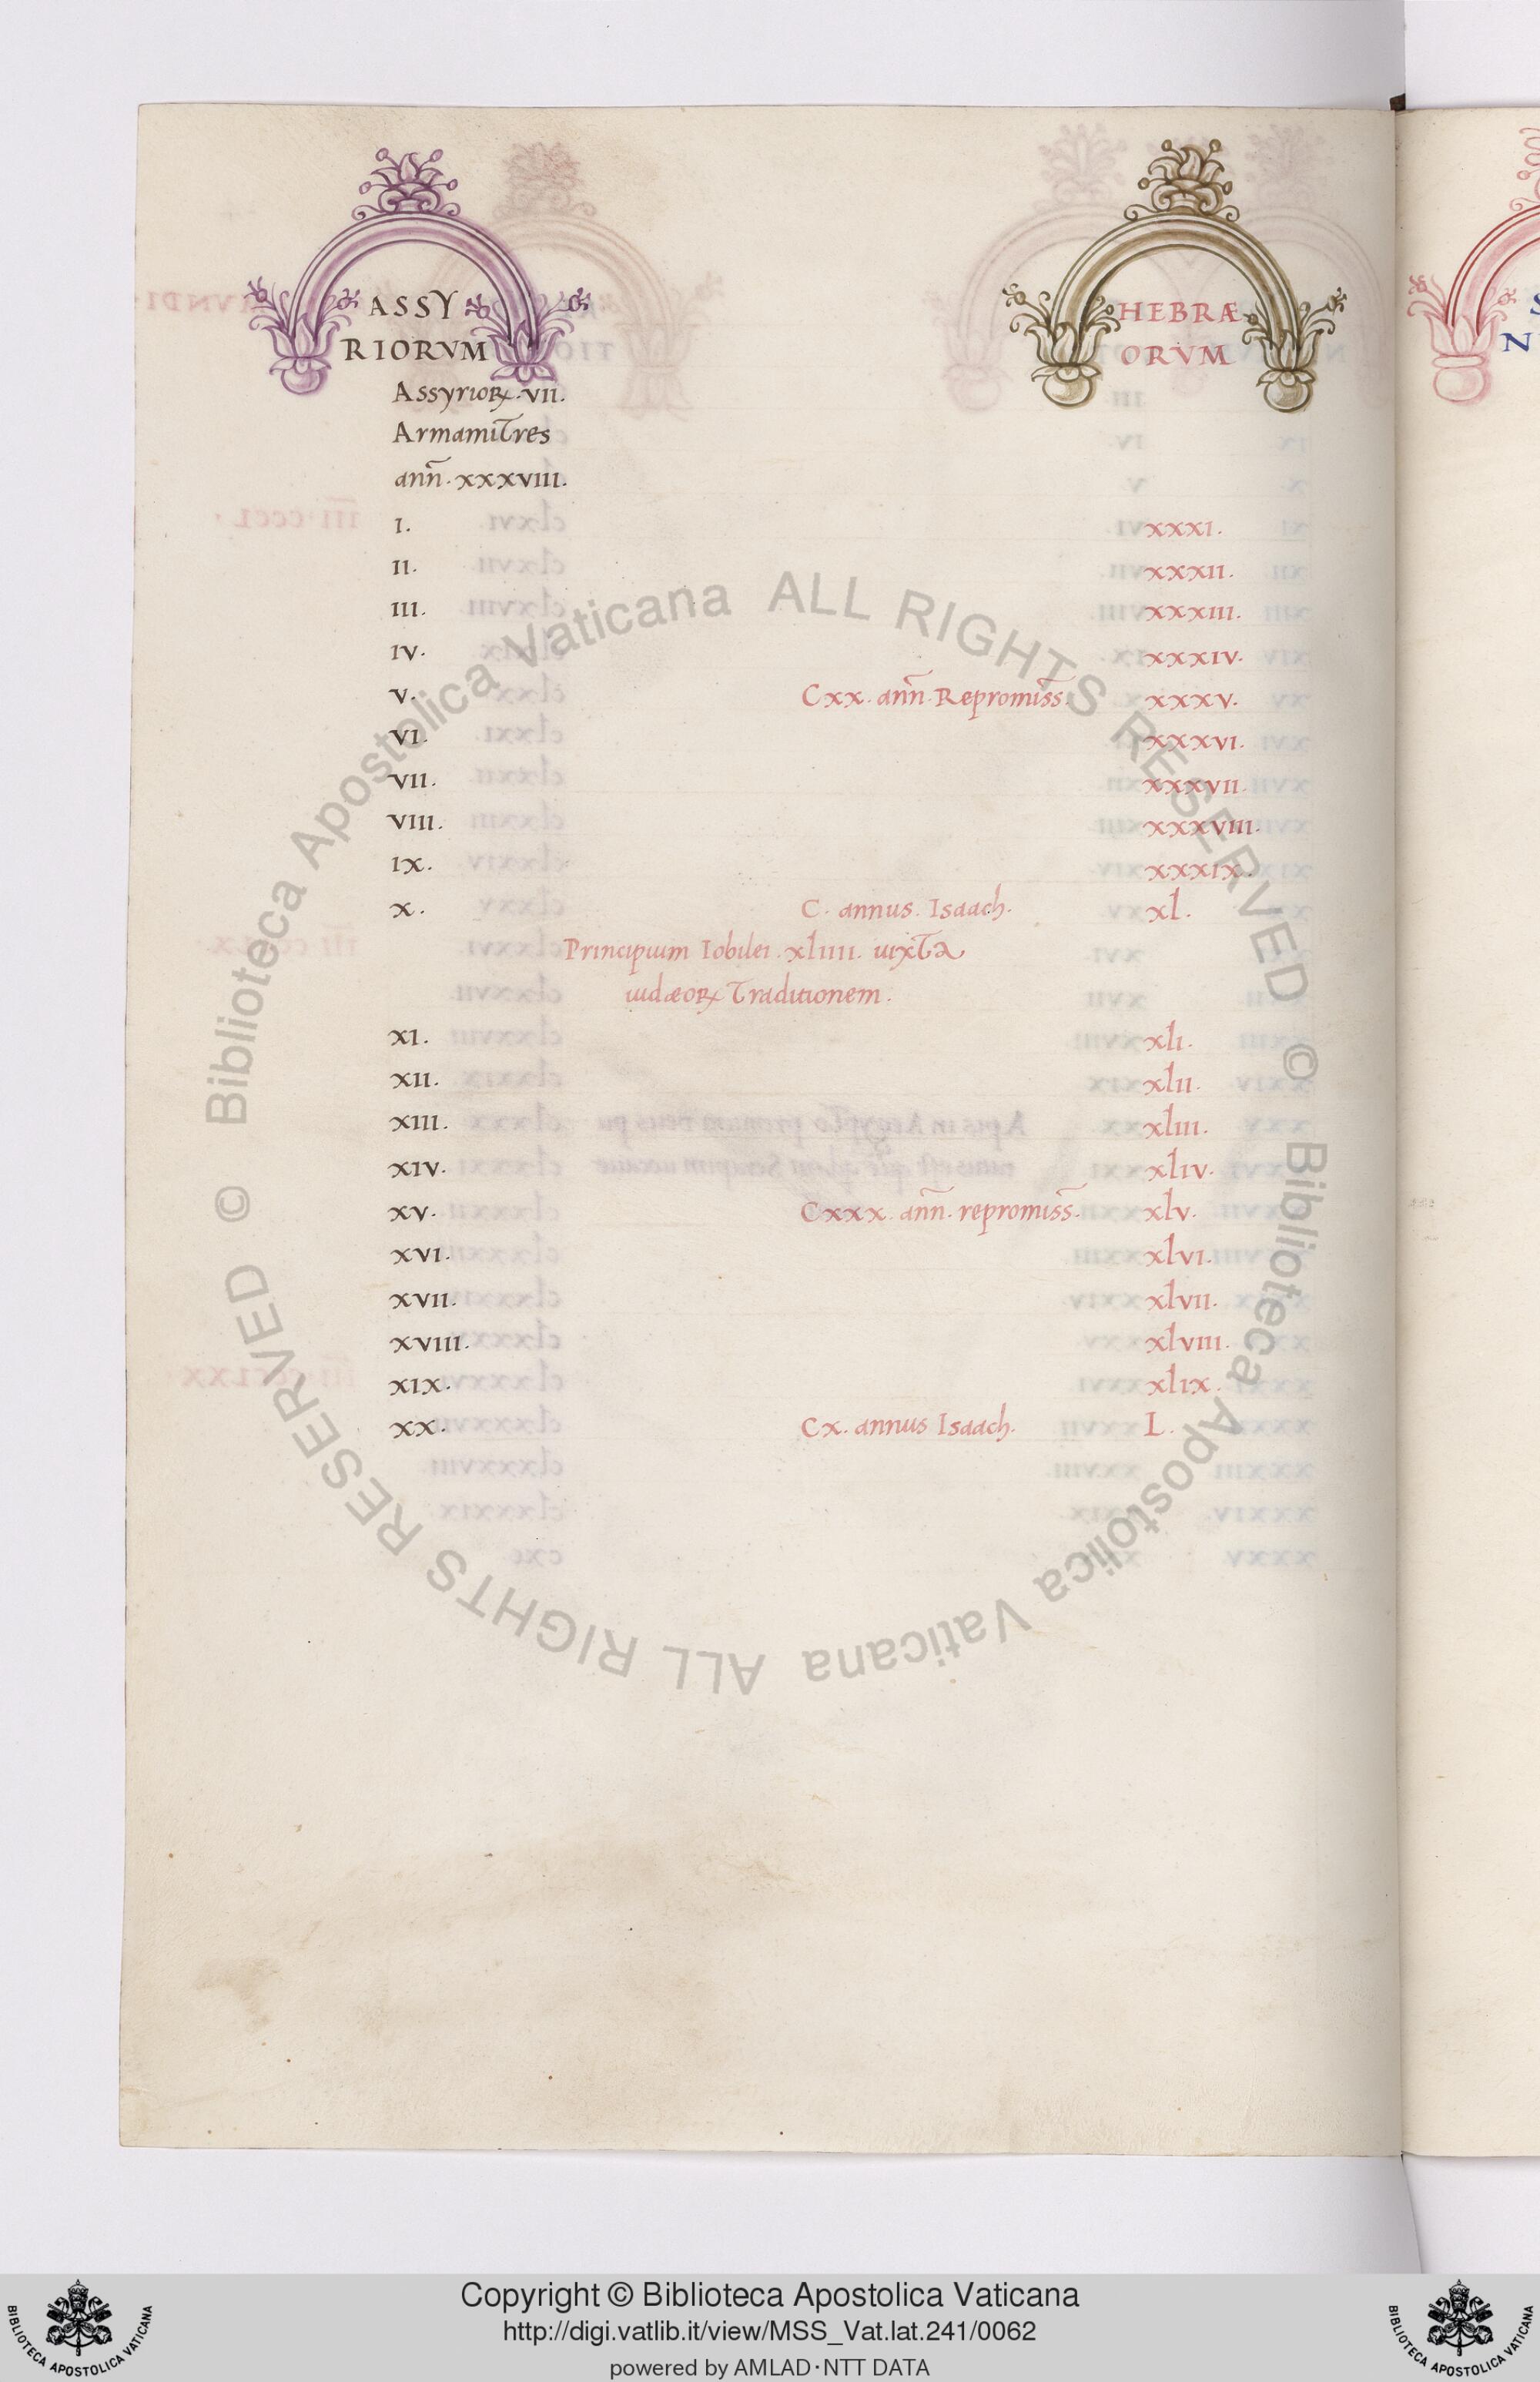 ASSY HEBRÆ
RIORVM ORVM
Assyrioꝝ·VII.
Armamitres
ann̄·xxxvIII.
I. xxxI.
II. xxxII.
III. xxxIII.
IV. xxxIV.
V. Cxx. ann̄·Repromiss̄. xxxV.
VI. xxxVI.
VII. xxxVII.
VIII. xxxVIII.
IX. xxxIX.
X. C. annus. Isaach. xl.
Principium Iobilei. xlIIII. iuxta
iudæoꝝ Traditionem.
XI. xlI.
XII. xlII.
XIII. xlIII.
XIV. xlIV.
XV. Cxxx. ann̄. repromiss̄. xlV.
XVI. xlVI.
XVII. xlVII.
XVIII. xlVIII.
XIX. xlIX.
XX. Cx. annus Isaach. L.
© Biblioteca Apostolica Vaticana ALL RIGHTS RESERVED
© Biblioteca Apostolica Vaticana ALL RIGHTS RESERVED
Copyright © Biblioteca Apostolica Vaticana
http://digi.vatlib.it/view/MSS_Vat.lat.241/0062
powered by AMLAD·NTT DATA
BIBLIOTECA APOSTOLICA VATICANA
BIBLIOTECA APOSTOLICA VATICANA